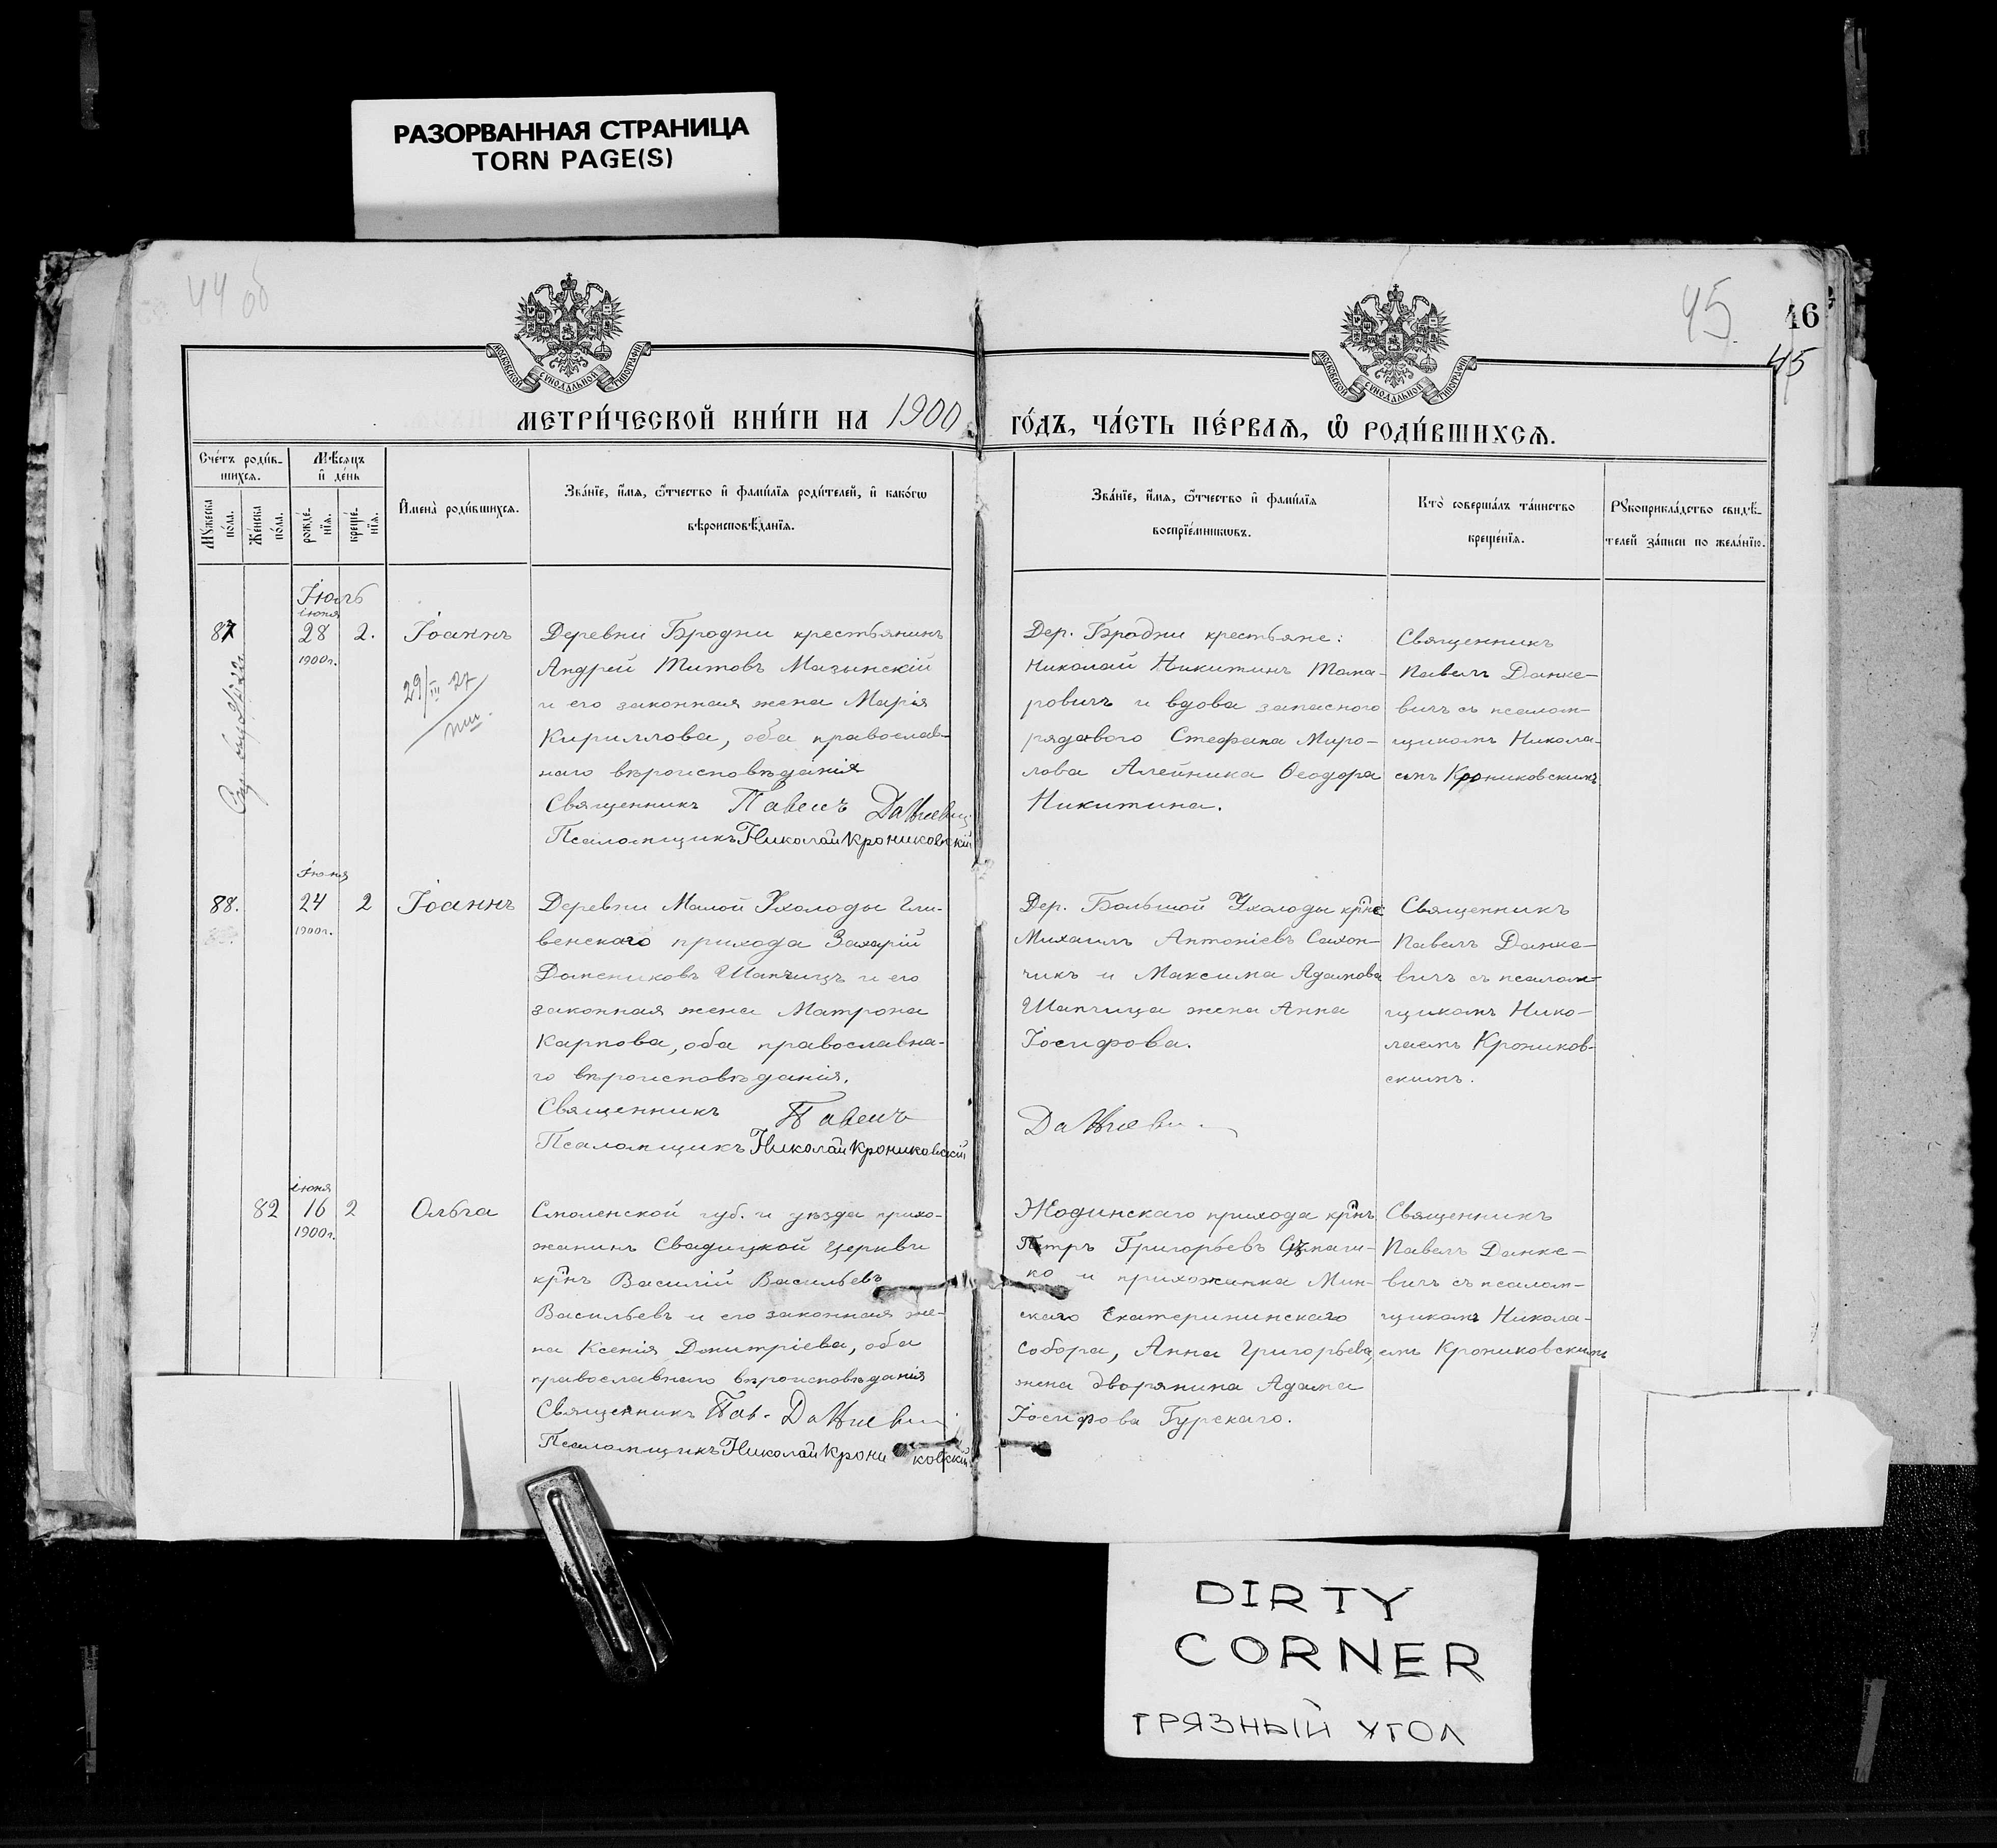 РАЗОРВАННАЯ СТРАНИЦА
TORN PAGE(S)
44 об
45
46
45
МОСКОВСКОЙ СѴНОДАЛЬНОЙ ТИПОГРАФІИ
МОСКОВСКОЙ СѴНОДАЛЬНОЙ ТИПОГРАФІИ
МЕТРИ́ЧЕСКОЙ КНИ́ГИ НА 1900 ГО́ДЪ, ЧА́СТЬ ПЕ́РВАѦ, Ѡ҆ РОДИ́ВШИХСѦ.
Сче́тъ роди́в-
шихсѧ.
Мꙋжеска
по́ла.
Же́нска
по́ла.
Мѣ́сѧцъ
и҆ де́нь
рожде́-
нїѧ.
креще́-
нїѧ.
И҆мена̀ роди́вшихсѧ.
Зва́нїе, и҆́мѧ, ѻ҆́тчество и҆ фами́лїѧ роди́телей, и҆ како́гѡ
вѣроисповѣ́данїѧ.
Зва́нїе, и҆́мѧ, ѻ҆́тчество и҆ фами́лїѧ
воспрїе́мникѡвъ.
Кто̀ соверша́лъ та́инство
креще́нїѧ.
Рꙋкоприкла́дство свидѣ́-
телей за́писи по жела́нїю.
Іюль
87
іюня
28
1900г.
2.
Іоаннъ
29/III 27
Деревни Бродни крестьянинъ
Андрей Титовъ Мазынскій
и его законная жена Марія
Кириллова, оба православ-
наго вѣроисповѣданія
Священникъ Павелъ Данкевич
Псаломщикъ Николай Крониковскій
Дер. Бродни крестьяне:
Николай Никитинъ Тама-
ровичъ и вдова запаснаго
рядового Стефана Миро-
лова Алейника Ѳеодора
Никитина.
Священникъ
Павелъ Данке-
вичъ съ псалом-
щикомъ Никола-
емъ Крониковскимъ
88.
іюня
24
1900г.
2
Іоаннъ
Деревни Малой Ухолоды Гли-
венскаго прихода Захарій
Шапчицъ и его
законная жена Матрона
Карпова, оба православна-
го вѣроисповѣданія.
Священникъ Павелъ
Данкевич
Псаломщикъ Николай Крониковскій
Дер. Большой Ухолоды крне
Михаилъ Антоніевъ Сахон-
чикъ и Максима Адамова
Шапчица жена Анна
Іосифова.
Священникъ
Павелъ Данке-
вичъ съ псалом-
щикомъ Нико-
лаемъ Кроников-
скимъ.
82
іюня
16
1900г.
2
Ольга
Смоленской губ. и уѣзда прихо-
жанинъ Свадицкой церкви
крнъ Василій Васильевъ
Васильевъ и его законная же-
на Ксенія Димитріева, оба
православнаго вѣроисповѣданія
Священникъ Пав. Данкевич
Псаломщикъ Николай Крониковскій
Жодинскаго прихода крнъ
Петръ Григорьевъ
ко и прихожанка Мин-
скаго Екатерининскаго
Собора, Анна Григорьева,
жена дворянина Адама
Іосифова Гурскаго.
Священникъ
Павелъ Данке-
вичъ съ псалом-
щикомъ Никола-
емъ Крониковскимъ
DIRTY
CORNER
ГРЯЗНЫЙ УГОЛ